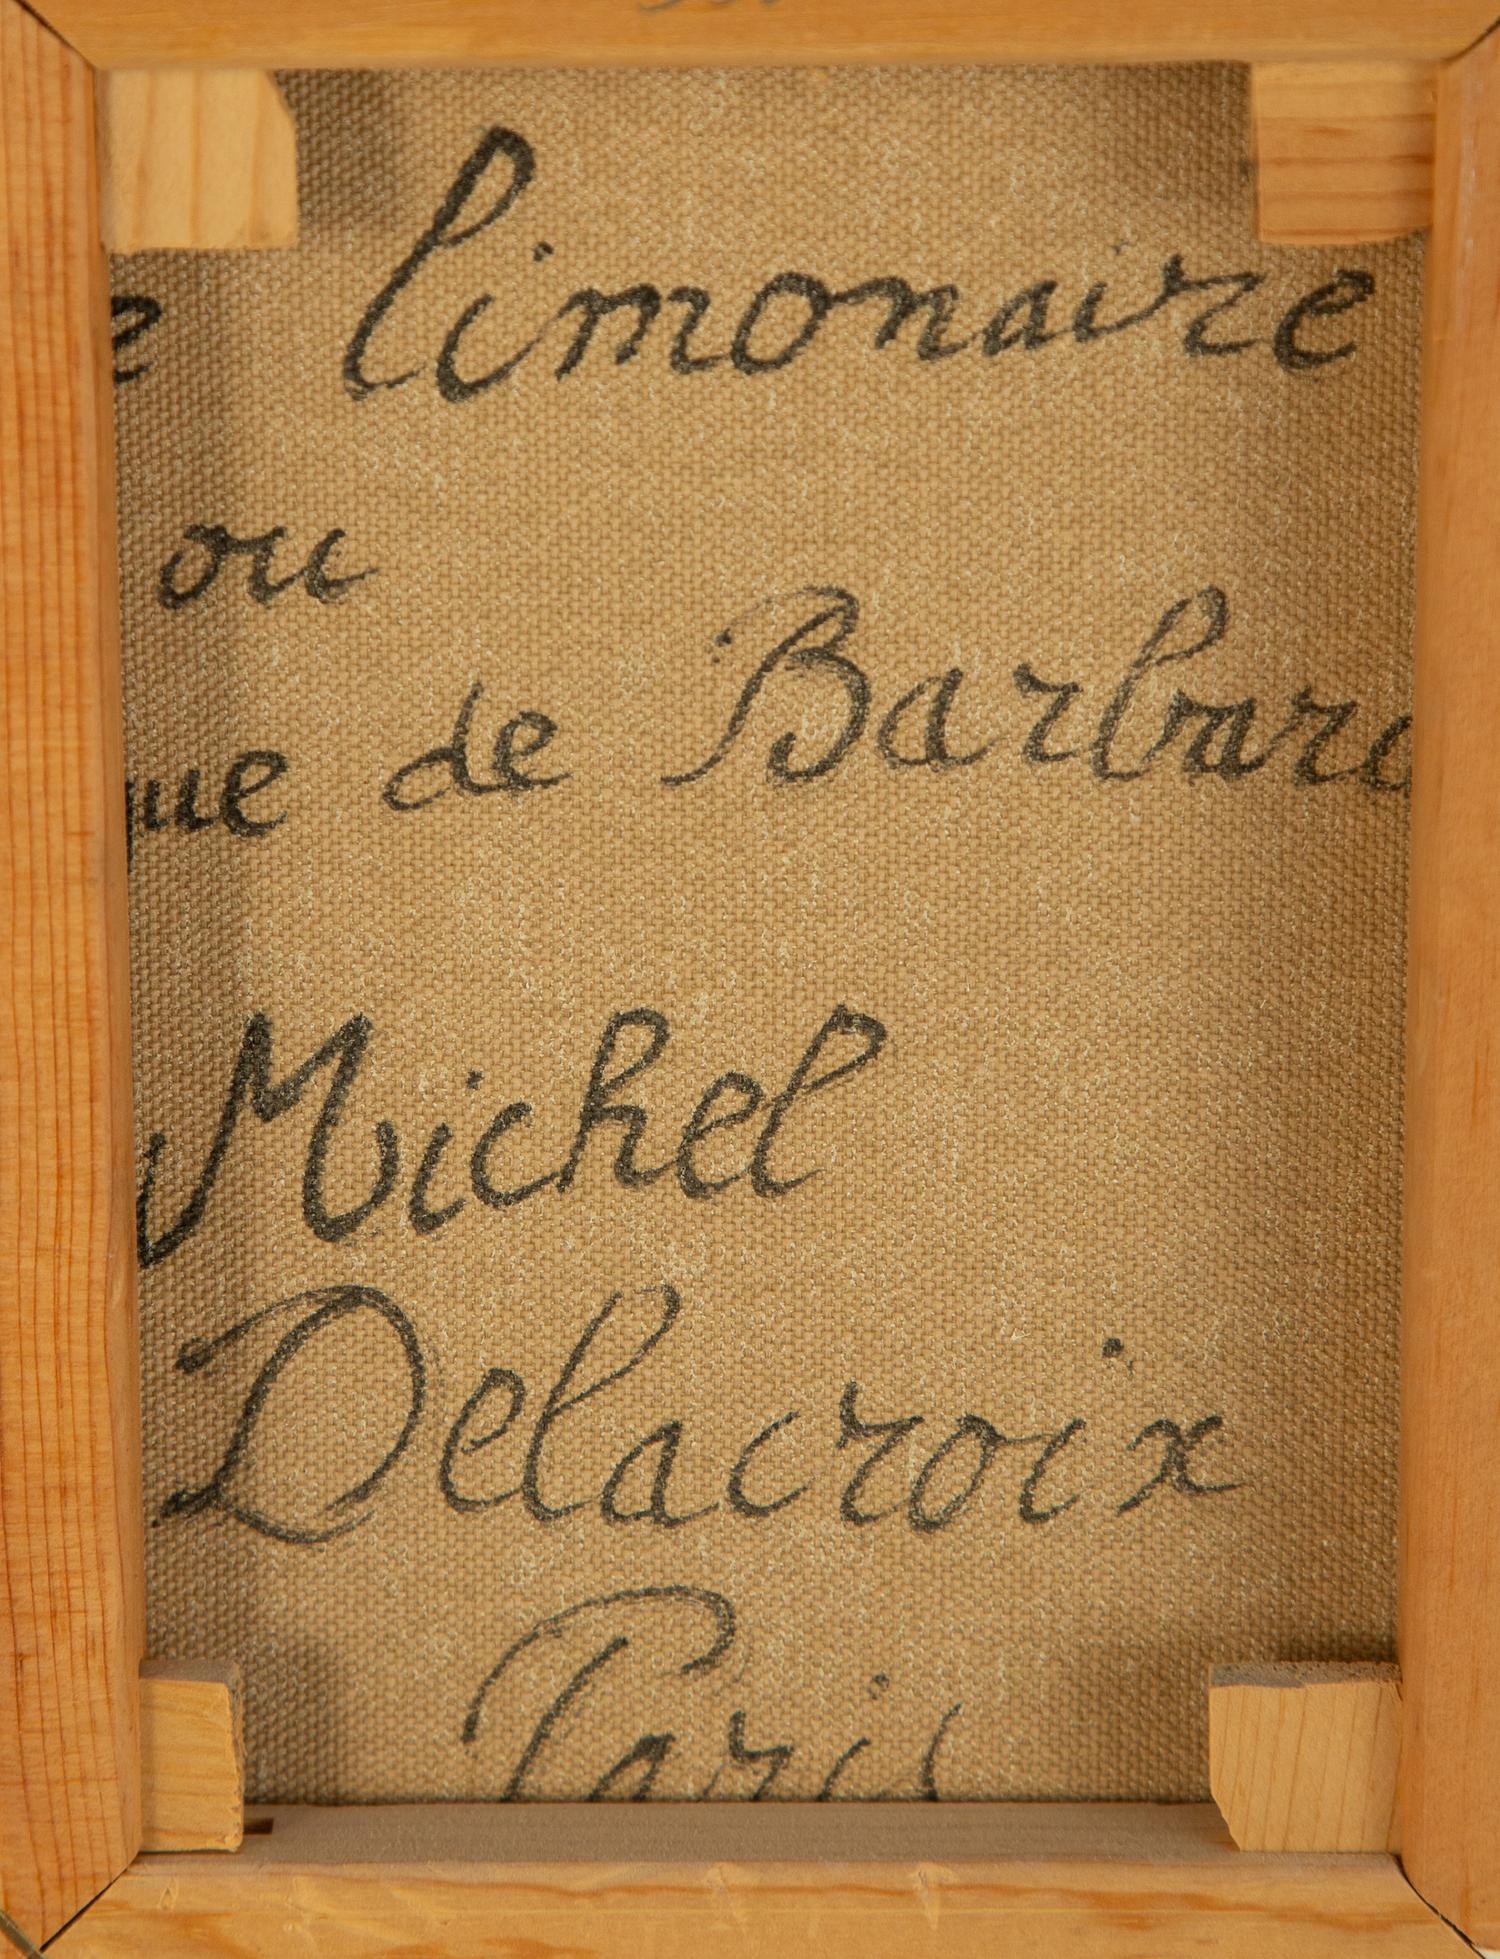 e limonaire
ou
que de Barbara
Michel
Delacroix
Paris